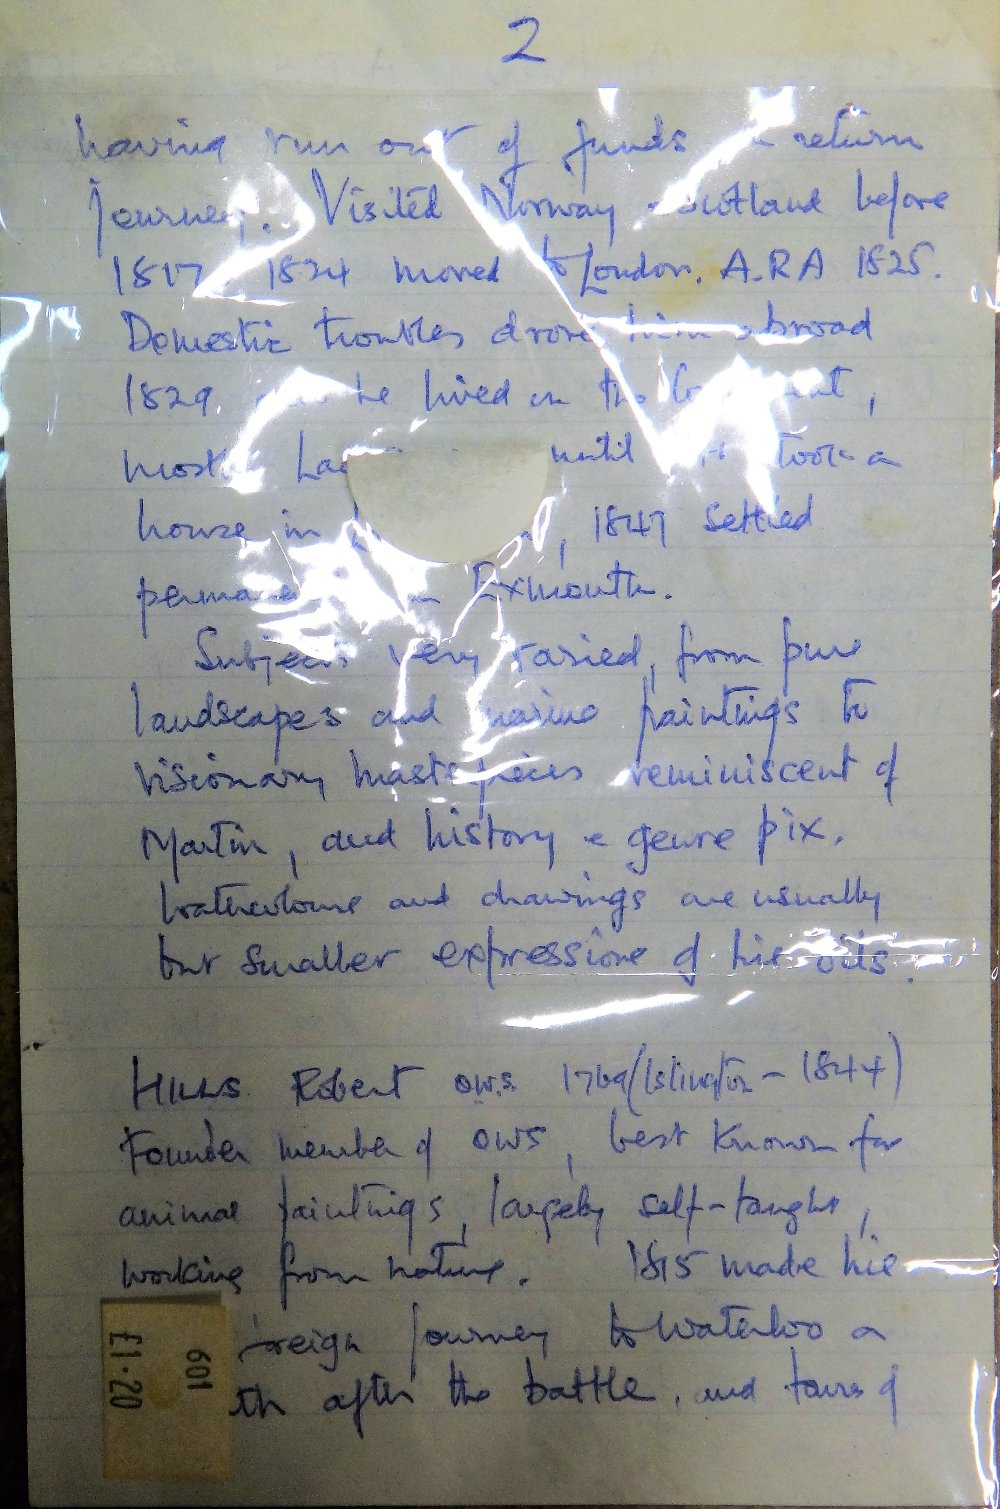 2
having run out of funds return
journey. Visited Norway Scotland before
1817 1824 moved to London. A.R.A 1825.
Domestic troubles drove him abroad
1829. he lived in the
until took a
house in , 1847 settled
Exmouth.
Subjects very varied, from pure
landscapes and marine paintings to
visionary masterpieces reminiscent of
Martin, and history & genre pix.
Watercolours and drawings are usually
but smaller expressions of his oils.
HILLS Robert O.W.S. 1769 (Islington - 1844)
Founder member of OWS, best known for
animal paintings, largely self-taught,
working from nature. 1815 made his
foreign journey to Waterloo a
th after the battle, and tours of
601
£1·20